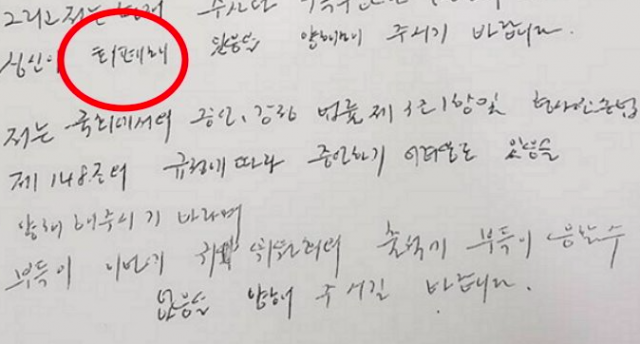 그리고 저는
심신이 피폐해 있음을 양해해 주시기 바랍니다.
저는 국회에서의 증언, 감정 법률 제3조 1항 및 형사소송법
제148조의 규정에 따라 증언하기 어려움도 있음을
양해해주시기 바라며
부득이 이번 귀 위원회의 출석에 부득이 응할 수
없음을 양해해 주시길 바랍니다.